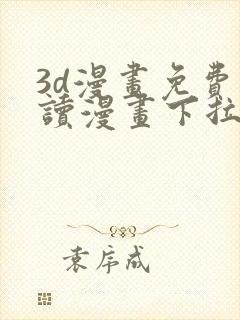 3d漫畫免費
讀漫畫下拉
袁序成